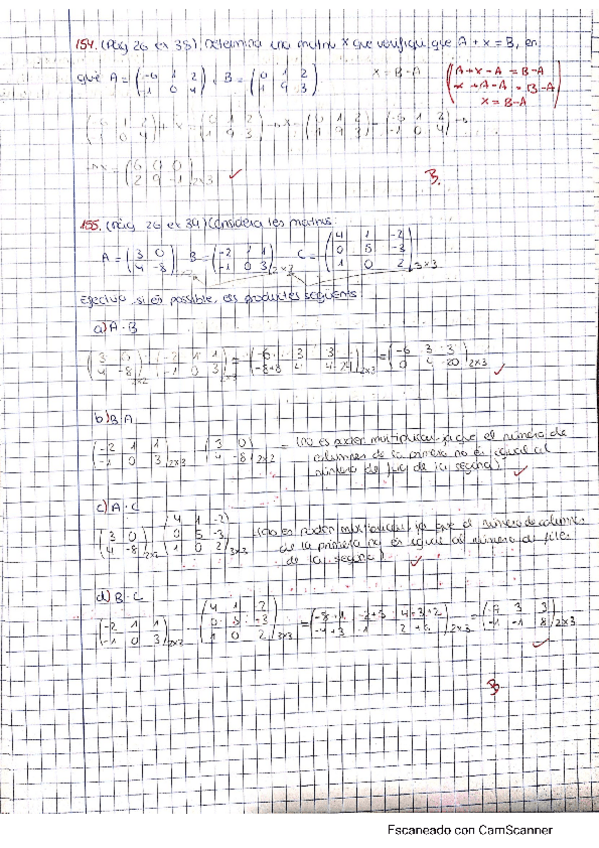 154. (Pàg 26 ex 38) Determina una matriu X que verifiqui que A + X = B, en
què A = (-6 1 2 / -1 0 4) , B = (0 1 2 / 1 9 3) X = B - A (A+X-A = B-A
X+A-A = B-A
X = B-A)
(-6 1 2 / -1 0 4) + X = (0 1 2 / 1 9 3) → X = (0 1 2 / 1 9 3) - (-6 1 2 / -1 0 4) →
→ X = (6 0 0 / 2 9 -1) 2x3 ✓
B.
155. (Pàg 26 ex 39) Considera les matrius:
A = (3 0 / 4 -8) B = (-2 1 1 / -1 0 3) 2x3 C = (4 1 -2 / 0 5 -3 / 1 0 2) 3x3
Efectua, si és possible, els productes següents:
a) A·B
(3 0 / 4 -8) 2x2 · (-2 1 1 / -1 0 3) 2x3 = (-6 3 3 / -8+8 4 4-24) 2x3 = (-6 3 3 / 0 4 -20) 2x3 ✓
b) B·A
(-2 1 1 / -1 0 3) 2x3 (3 0 / 4 -8) 2x2 = (no es poden multiplicar ja que el número de
columnes de la primera no és igual al
número de files de la segona) ✓
c) A·C
(3 0 / 4 -8) 2x2 (4 1 -2 / 0 5 -3 / 1 0 2) 3x3 (no es poden multiplicar ja que el número de columnes
de la primera no és igual al número de files
de la segona) ✓
d) B·C
(-2 1 1 / -1 0 3) 2x3 · (4 1 -2 / 0 5 -3 / 1 0 2) 3x3 = (-8+1 -2+5 4-3+2 / -4+3 -1 2+6) 2x3 = (-7 3 3 / -1 -1 8) 2x3 ✓
B.
Escaneado con CamScanner